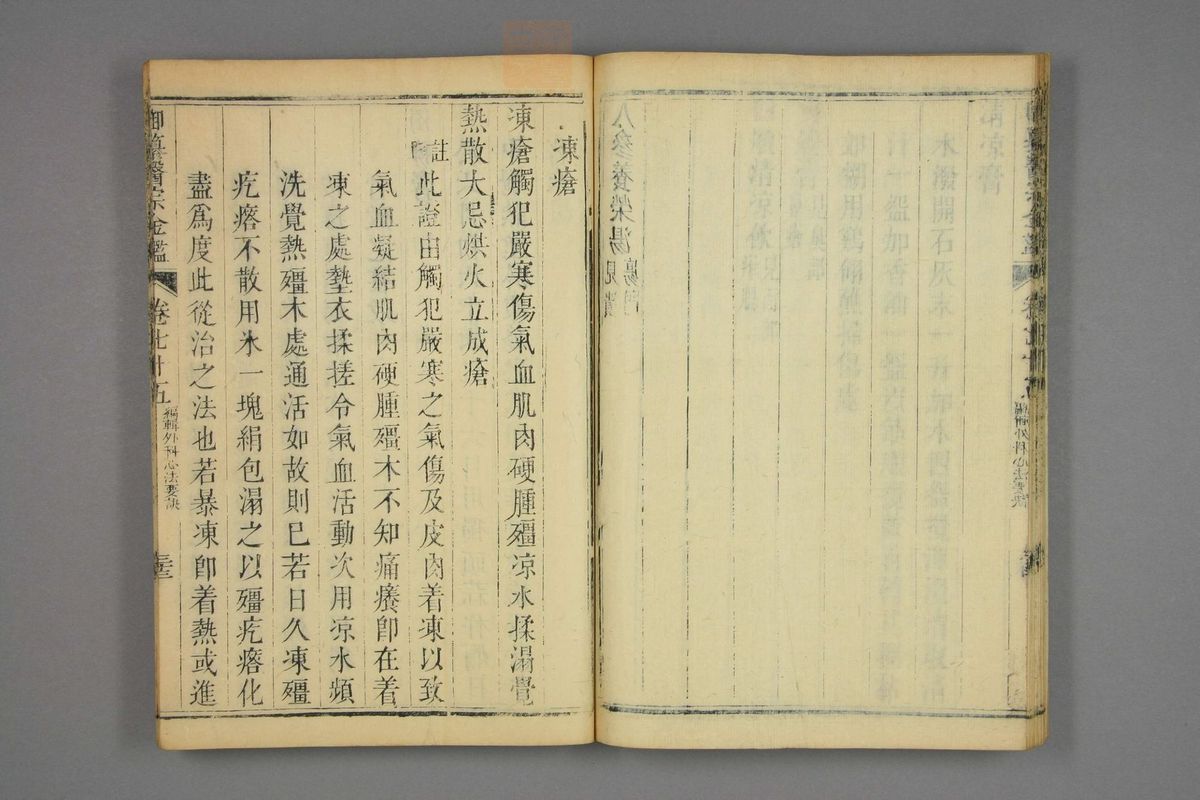 人參養榮湯見潰
瘍門
凍瘡
凍瘡觸犯嚴寒傷氣血肌肉硬腫殭凉水揉溻覺
熱散大忌烘火立成瘡
註此證由觸犯嚴寒之氣傷及皮肉着凍以致
氣血凝結肌肉硬腫殭木不知痛癢卽在着
凍之處墊衣揉搓令氣血活動次用凉水頻
洗覺熱殭木處通活如故則已若日久凍殭
疙瘩不散用氷一塊絹包溻之以殭疙瘩化
盡爲度此從治之法也若暴凍卽着熱或進
御纂醫宗金鑑 卷七十五 編輯外科心法要訣